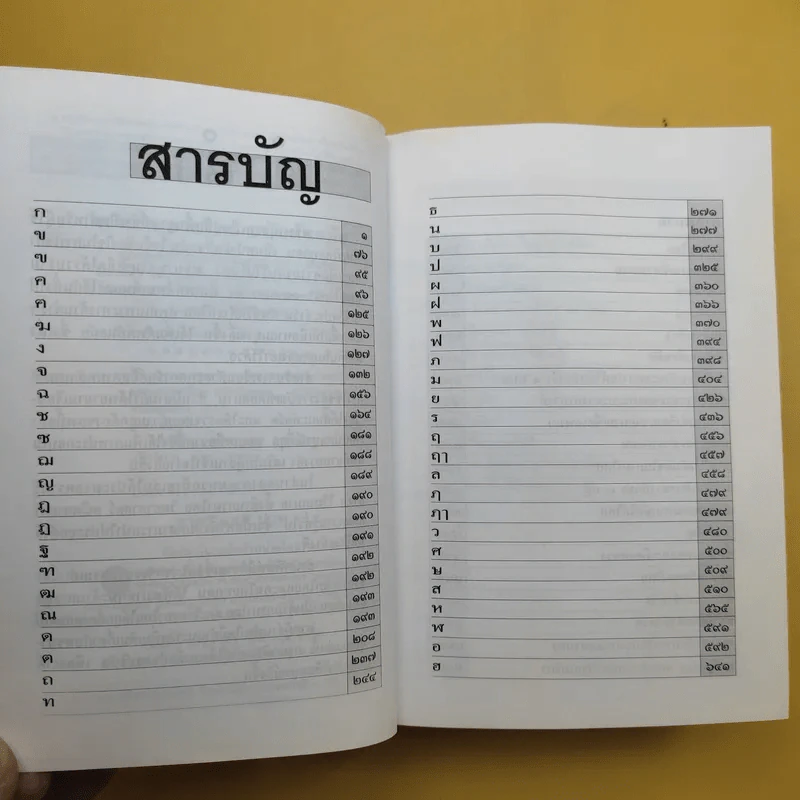 สารบัญ
ก ๑
ข ๗๖
ฃ ๙๕
ค ๙๖
ฅ ๑๒๕
ฆ ๑๒๖
ง ๑๒๗
จ ๑๓๒
ฉ ๑๕๖
ช ๑๖๔
ซ ๑๘๑
ฌ ๑๘๘
ญ ๑๘๙
ฎ ๑๙๐
ฏ ๑๙๐
ฐ ๑๙๑
ฑ ๑๙๒
ฒ ๑๙๒
ณ ๑๙๓
ด ๑๙๓
ต ๒๐๘
ถ ๒๓๗
ท ๒๔๔
ธ ๒๗๑
น ๒๗๗
บ ๒๙๙
ป ๓๒๕
ผ ๓๖๐
ฝ ๓๖๖
พ ๓๗๐
ฟ ๓๙๔
ภ ๓๙๘
ม ๔๐๔
ย ๔๒๖
ร ๔๓๖
ฤ ๔๕๖
ฤๅ ๔๕๗
ล ๔๕๘
ฦ ๔๗๙
ฦๅ ๔๗๙
ว ๔๘๐
ศ ๕๐๐
ษ ๕๐๙
ส ๕๑๐
ห ๕๖๕
ฬ ๕๙๑
อ ๕๙๒
ฮ ๖๔๑